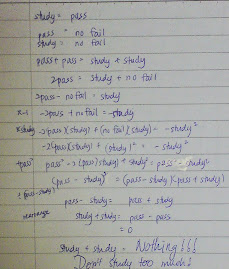 study = pass
pass = no fail
study = no fail
pass + pass = study + study
2pass = study + no fail
2pass - no fail = study
x-1 -2pass + no fail = -study
xstudy -2(pass)(study) + (no fail)(study) = -study²
-2(pass)(study) + (study)² = -study²
+pass² pass² - 2(pass)(study) + study² = pass² - study²
(pass - study)² = (pass - study)(pass + study)
÷(pass-study) pass - study = pass + study
rearrange study + study = pass - pass
= 0
study + study = Nothing!!!
Don't study too much!